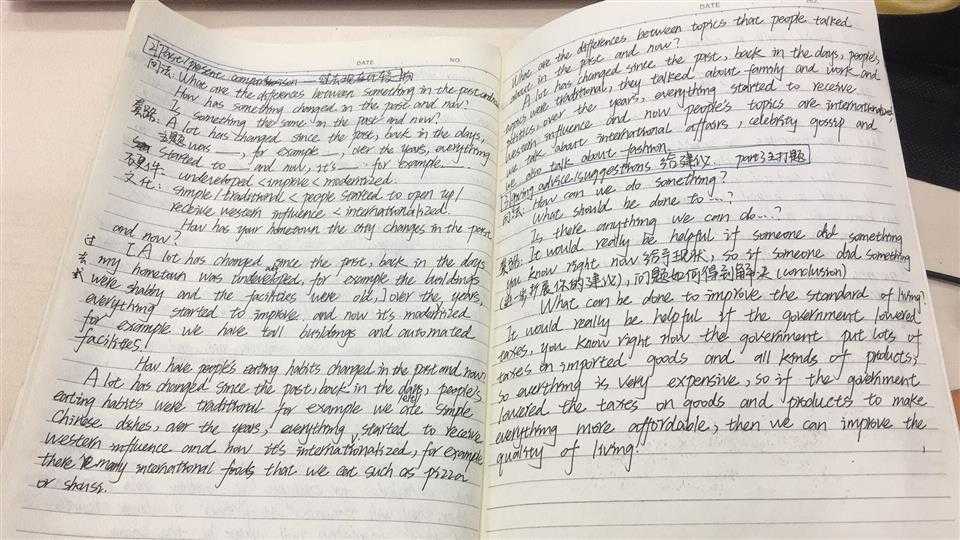 DATE NO.
2. Past/present comparison 过去现在比较
问法: What are the differences between something in the past and now
How has something changed in the past and now?
Is something the same in the past and now?
套路: A lot has changed since the past, back in the days,
主题 was ___, for example ___, over the years, everything
started to ___ and now, it's ___ for example ___
undeveloped < improve < modernized.
文化: simple/traditional < people started to open up/
receive western influence < internationalized.
How has your hometown the city changes in the past
and now?
过去式 [A lot has changed since the past, back in the days
my hometown was undeveloped, for example the buildings
were shabby and the facilities were old,] over the years,
everything started to improve, and now it's modernized
for example we have tall buildings and automated
facilities!
How have people's eating habits changed in the past and now
A lot has changed since the past, back in the days, people's
eating habits were traditional for example we ate simple
Chinese dishes, over the years, everything started to receive
western influence and now it's internationalized, for example
there're many international foods that we eat such as pizza
or shusi.
DATE NO.
What are the differences between topics that people talked
about in the past and now?
A lot has changed since the past, back in the days, people's
topics were traditional, they talked about family and work and
politics, over the years, everything started to receive
western influence and now people's topics are internationalized
we talk about international affairs, celebrity gossip and
we also talk about fashion.
3. Giving advice/suggestions 给建议. part3主打题
问法: How can we do something?
What should be done to ....?
Is there anything we can do ....?
套路: It would really be helpful if someone did something
you know right now 给予现状, so if someone did something
(进一步扩展你的建议), 问题如何得到解决 (conclusion)
What can be done to improve the standard of living?
It would really be helpful if the government lowered
taxes, you know right now the government put lots of
taxes on imported goods and all kinds of products,
so everthing is very expensive, so if the government
lowered the taxes on goods and products to make
everything more affordable, then we can improve the
quality of living.